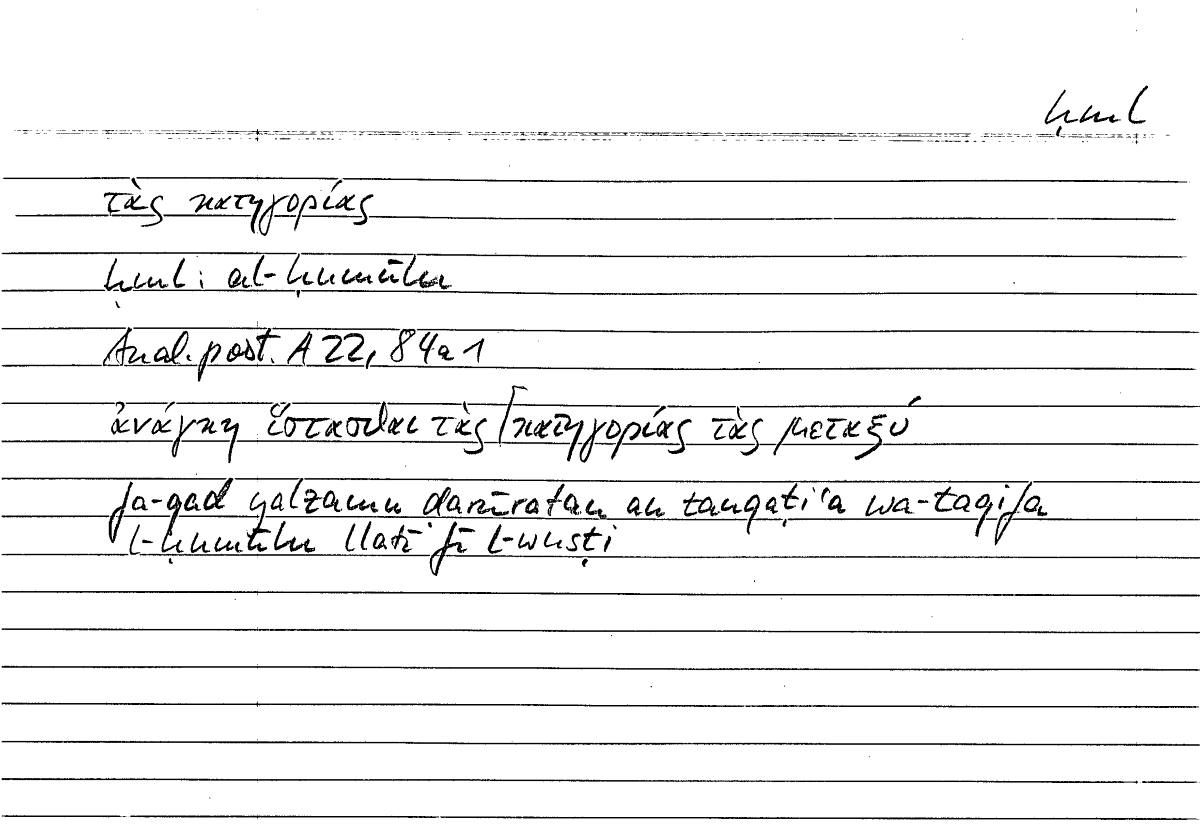 ḥml
τὰς κατηγορίας
ḥml: al-ḥumūlu
Anal. post. A 22, 84a1
ἀνάγκη ἵστασθαι τὰς ⌈κατηγορίας τὰς μεταξύ
fa-qad yalzamu ḍarūratan an tanqaṭiʿa wa-taqifa
l-ḥumūlu llatī fī l-wusṭi